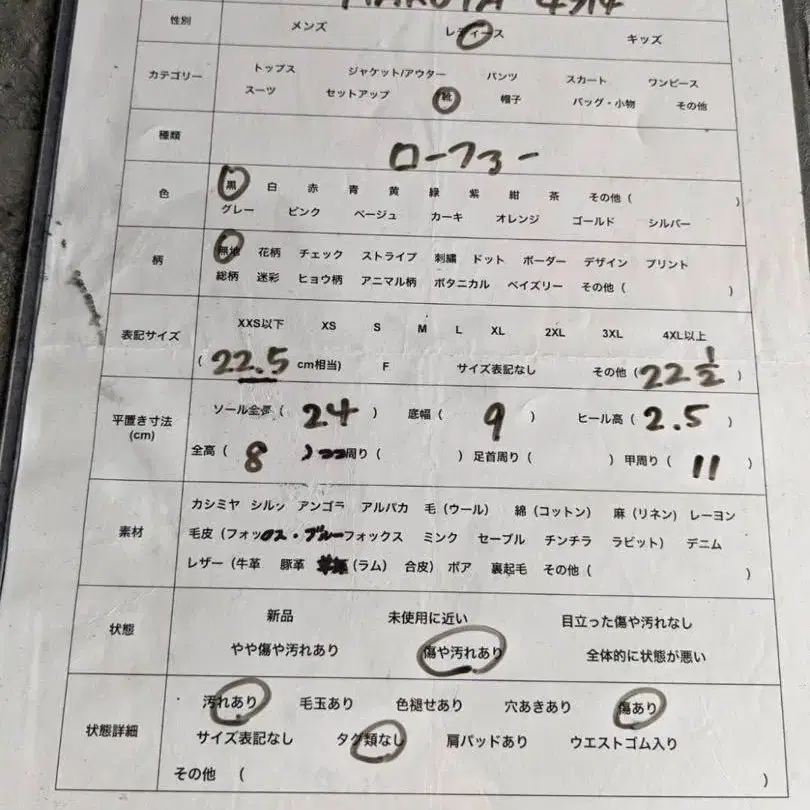 HARUTA 4514
性別 メンズ レディース キッズ
カテゴリー トップス ジャケット/アウター パンツ スカート ワンピース
スーツ セットアップ 靴 帽子 バッグ・小物 その他
種類 ローファー
色 黒 白 赤 青 黄 緑 紫 紺 茶 その他 ( )
グレー ピンク ベージュ カーキ オレンジ ゴールド シルバー
柄 無地 花柄 チェック ストライプ 刺繍 ドット ボーダー デザイン プリント
総柄 迷彩 ヒョウ柄 アニマル柄 ボタニカル ペイズリー その他 ( )
表記サイズ XXS以下 XS S M L XL 2XL 3XL 4XL以上
( 22.5 cm相当) F サイズ表記なし その他 ( 22 1/2 )
平置き寸法 (cm) ソール全長 ( 24 ) 底幅 ( 9 ) ヒール高 ( 2.5 )
全高 ( 8 ) 周り ( ) 足首周り ( ) 甲周り ( 11 )
素材 カシミヤ シルク アンゴラ アルパカ 毛 (ウール) 綿 (コットン) 麻 (リネン) レーヨン
毛皮 (フォックス・ブルーフォックス ミンク セーブル チンチラ ラビット) デニム
レザー (牛革 豚革 (ラム) 合皮) ボア 裏起毛 その他 ( )
状態 新品 未使用に近い 目立った傷や汚れなし
やや傷や汚れあり 傷や汚れあり 全体的に状態が悪い
状態詳細 汚れあり 毛玉あり 色褪せあり 穴あきあり 傷あり
サイズ表記なし タグ類なし 肩パッドあり ウエストゴム入り
その他 ( )